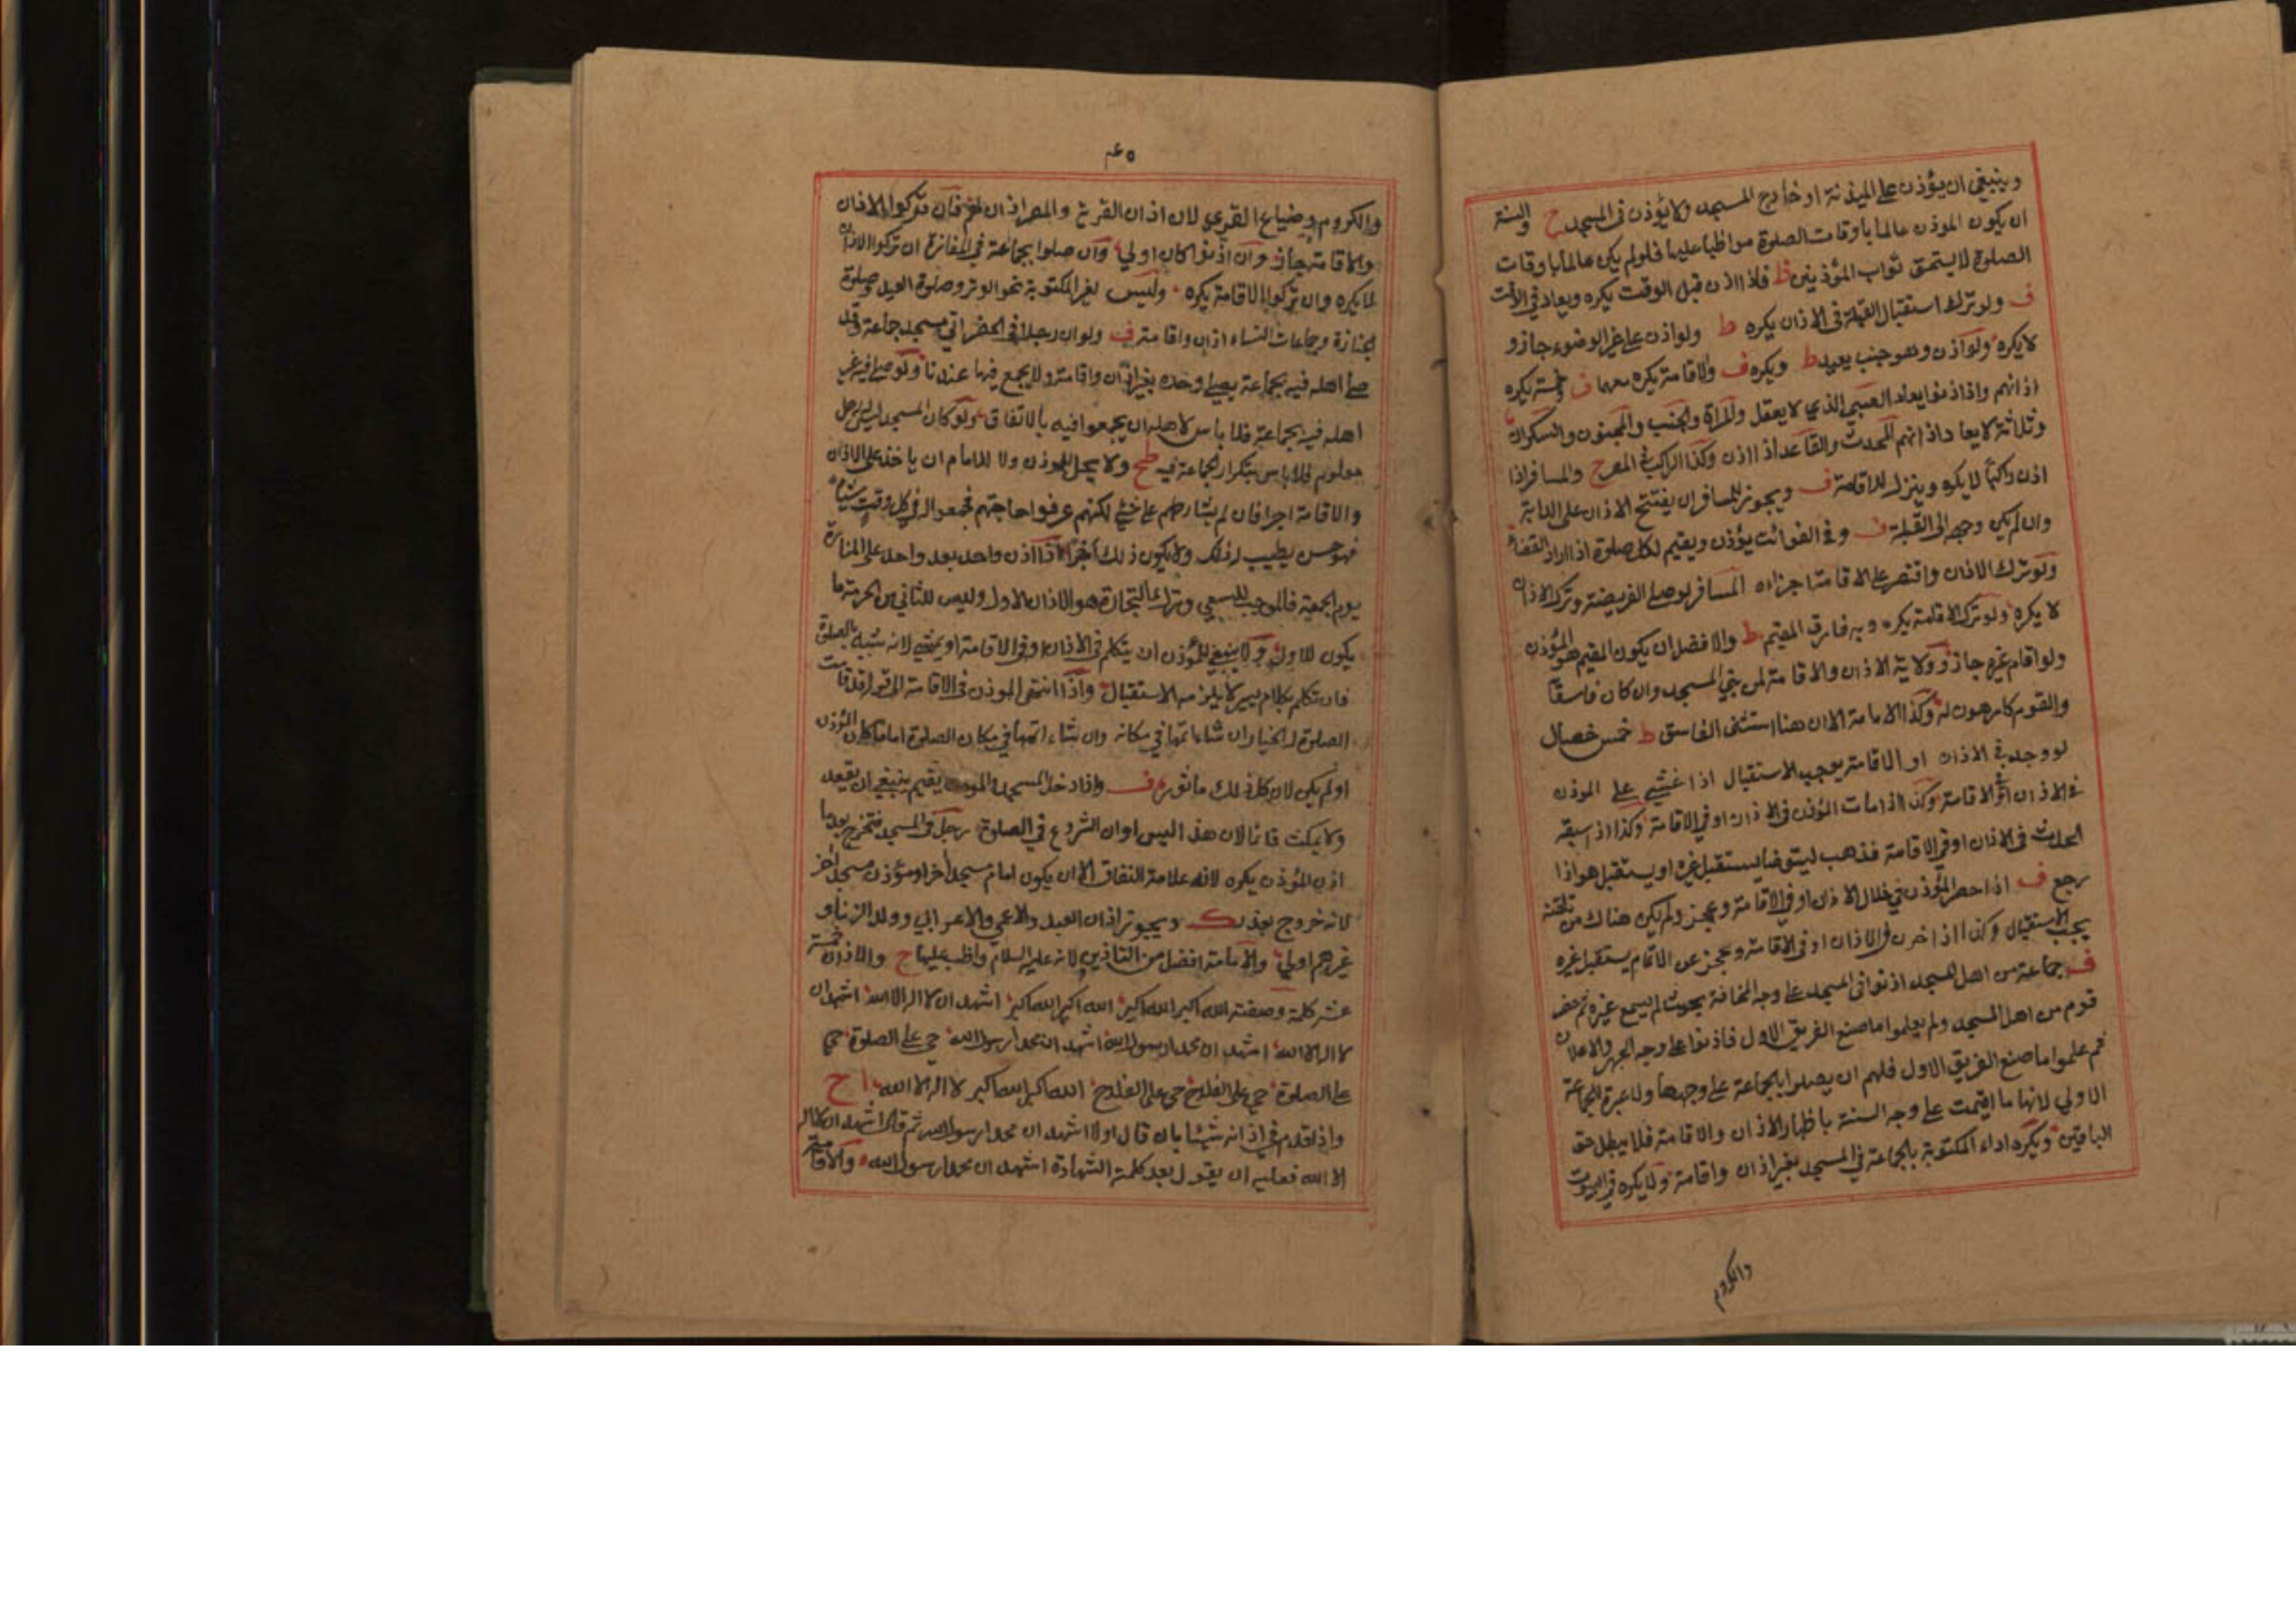 وينبغي ان يؤذن على الميذنة او خارج المسجد ولا يؤذن في المسجد ح والسنة
ان يكون الموذن عالما باوقات الصلوة مواظبا عليها فلو لم يكن عالما باوقات
الصلوة لا يستحق ثواب المؤذنين ظ فاذا اذن قبل الوقت يكره ويعاد في الوقت
ف ولو ترك استقبال القبلة في الاذان يكره ط ولو اذن على غير الوضوء جاز و
لا يكره ولو اذن وهو جنب يعيد ط ويكره ف والاقامة يكره معهما ف خمسة يكره
اذانهم واذا اذنوا يعاد الصبي الذي لا يعقل والمراة والجنب والمجنون والسكران
وثلاثة لا يعاد اذانهم المحدث والقاعد اذا اذن وكذا الراكب في المصر ح والمسافر اذا
اذن راكبا لا يكره وينزل للاقامة ف ويجوز للمسافر ان يفتتح الاذان على الدابة
وان لم يكن وجهه الى القبلة ف وفي الفوائت يؤذن ويقيم لكل صلوة اذا اراد القضاء
ولو ترك الاذان واقتصر على الاقامة اجزاه المسافر لو صلى الفريضة وترك الاذان
لا يكره ولو ترك الاقامة يكره وبه فارق المقيم ط والافضل ان يكون المقيم هو المؤذن
ولو اقام غيره جاز وولاية الاذان والاقامة لمن بنى المسجد وان كان فاسقا
والقوم كارهون له وكذا الامامة الا ان هنا استثنى الفاسق ط خمس خصال
لو وجد في الاذان او الاقامة يوجب الاستقبال اذا غشي على الموذن
في الاذان او الاقامة وكذا اذا مات المؤذن في الاذان او في الاقامة وكذا اذا سبقه
الحدث في الاذان او في الاقامة فذهب ليتوضا يستقبل غيره او يستقبل هو اذا
رجع ف اذا حصر المؤذن في خلال الاذان او في الاقامة وعجز ولم يكن هناك من تلقنه
يجب الاستقبال وكذا اذا خرس في الاذان او في الاقامة وعجز عن الاتمام يستقبل غيره
ف جماعة من اهل المسجد اذنوا في المسجد على وجه المخافة بحيث لم يسمع غيرهم ثم حضر
قوم من اهل المسجد ولم يعلموا ما صنع الفريق الاول فاذنوا على وجه الجهر والاعلان
ثم علموا ما صنع الفريق الاول فلهم ان يصلوا بالجماعة على وجهها ولا عبرة للجماعة
الاولى لانها ما اقيمت على وجه السنة باظهار الاذان والاقامة فلا يبطل حق
الباقين ويكره اداء المكتوبة بالجماعة في المسجد بغير اذان واقامة ولا يكره في البيوت
والكروم
٤٥
والكروم وضياع القرى لان اذان القرية والمصر اذان لهم فان تركوا الاذان
والاقامة جاز وان اذنوا كان اولى وان صلوا بجماعة في المفازة ان تركوا الاذان
لا يكره وان تركوا الاقامة يكره وليس لغير المكتوبة نحو الوتر وصلوة العيد وصلوة
الجنازة وجماعات النساء اذان واقامة ف ولو ان رجلا في الحضر اتى مسجد جماعة وقد
صلى اهله فيه بجماعة يصلي وحده بغير اذان واقامة ولا يجمع فيها عندنا ولو صلى فيه غير
اهله فيه بجماعة فلا باس لاهله ان يجمعوا فيه بالاتفاق ولو كان المسجد ليس له اهل
معلوم فلا باس بتكرار الجماعة فيه ظح ولا يحل للموذن ولا للامام ان ياخذ على الاذان
والاقامة اجرا فان لم يشارطهم على شئ لكنهم عرفوا حاجتهم فجمعوا له في كل وقت شيئا
فهو حسن يطيب له ذلك ولا يكون ذلك اجرا اذا اذن واحد بعد واحد على المنارة
يوم الجمعة فالموجب للسعي وترك التجارة هو الاذان الاول وليس للثاني من الحرمة ما
يكون للاول ولا ينبغي للمؤذن ان يتكلم في الاذان او في الاقامة او يمشي لانه شبيه بالصلوة
فان تكلم بكلام يسير لا يلزمه الاستقبال واذا انتهى الموذن في الاقامة الى قوله قد قامت
الصلوة له الخيار ان شاء اتمها في مكانه وان شاء اتمها في مكان الصلوة اماما كان المؤذن
او لم يكن لان كل ذلك ماثورة ف واذا دخل المسجد والموذن يقيم ينبغي ان يقعد
ولا يمكث قائما لان هذا ليس اوان الشروع في الصلوة رجل في المسجد فتخرج بعد ما
اذن المؤذن يكره لانه علامة النفاق الا ان يكون امام مسجد اخر او مؤذن مسجد اخر
لانه خروج بعذر ك ويجوز اذان العبد والاعمى والاعرابي وولد الزنا و
غيرهم اولى والامامة افضل من التاذين لانه عليه السلام واظب عليها ح والاذان خمسة
عشر كلمة وصفته الله اكبر الله اكبر الله اكبر الله اكبر اشهد ان لا اله الا الله اشهد ان
لا اله الا الله اشهد ان محمدا رسول الله اشهد ان محمدا رسول الله حي على الصلوة حي
على الصلوة حي على الفلاح حي على الفلاح الله اكبر الله اكبر لا اله الا الله ا ح
واذا قدم في اذانه شيئا بان قال اولا اشهد ان محمدا رسول الله ثم قال اشهد ان لا اله
الا الله فعليه ان يقول بعد كلمة الشهادة اشهد ان محمدا رسول الله والاقامة